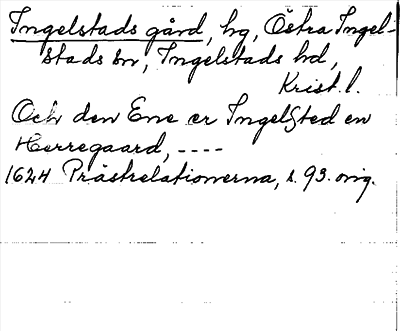 Ingelstads gård, hg, Östra Ingel-
stads sn, Ingelstads hd,
Krist. l.
Och den Ene er Ingelsted en
Herregaard, ----
1624 Prästrelationerna, s. 93. orig.